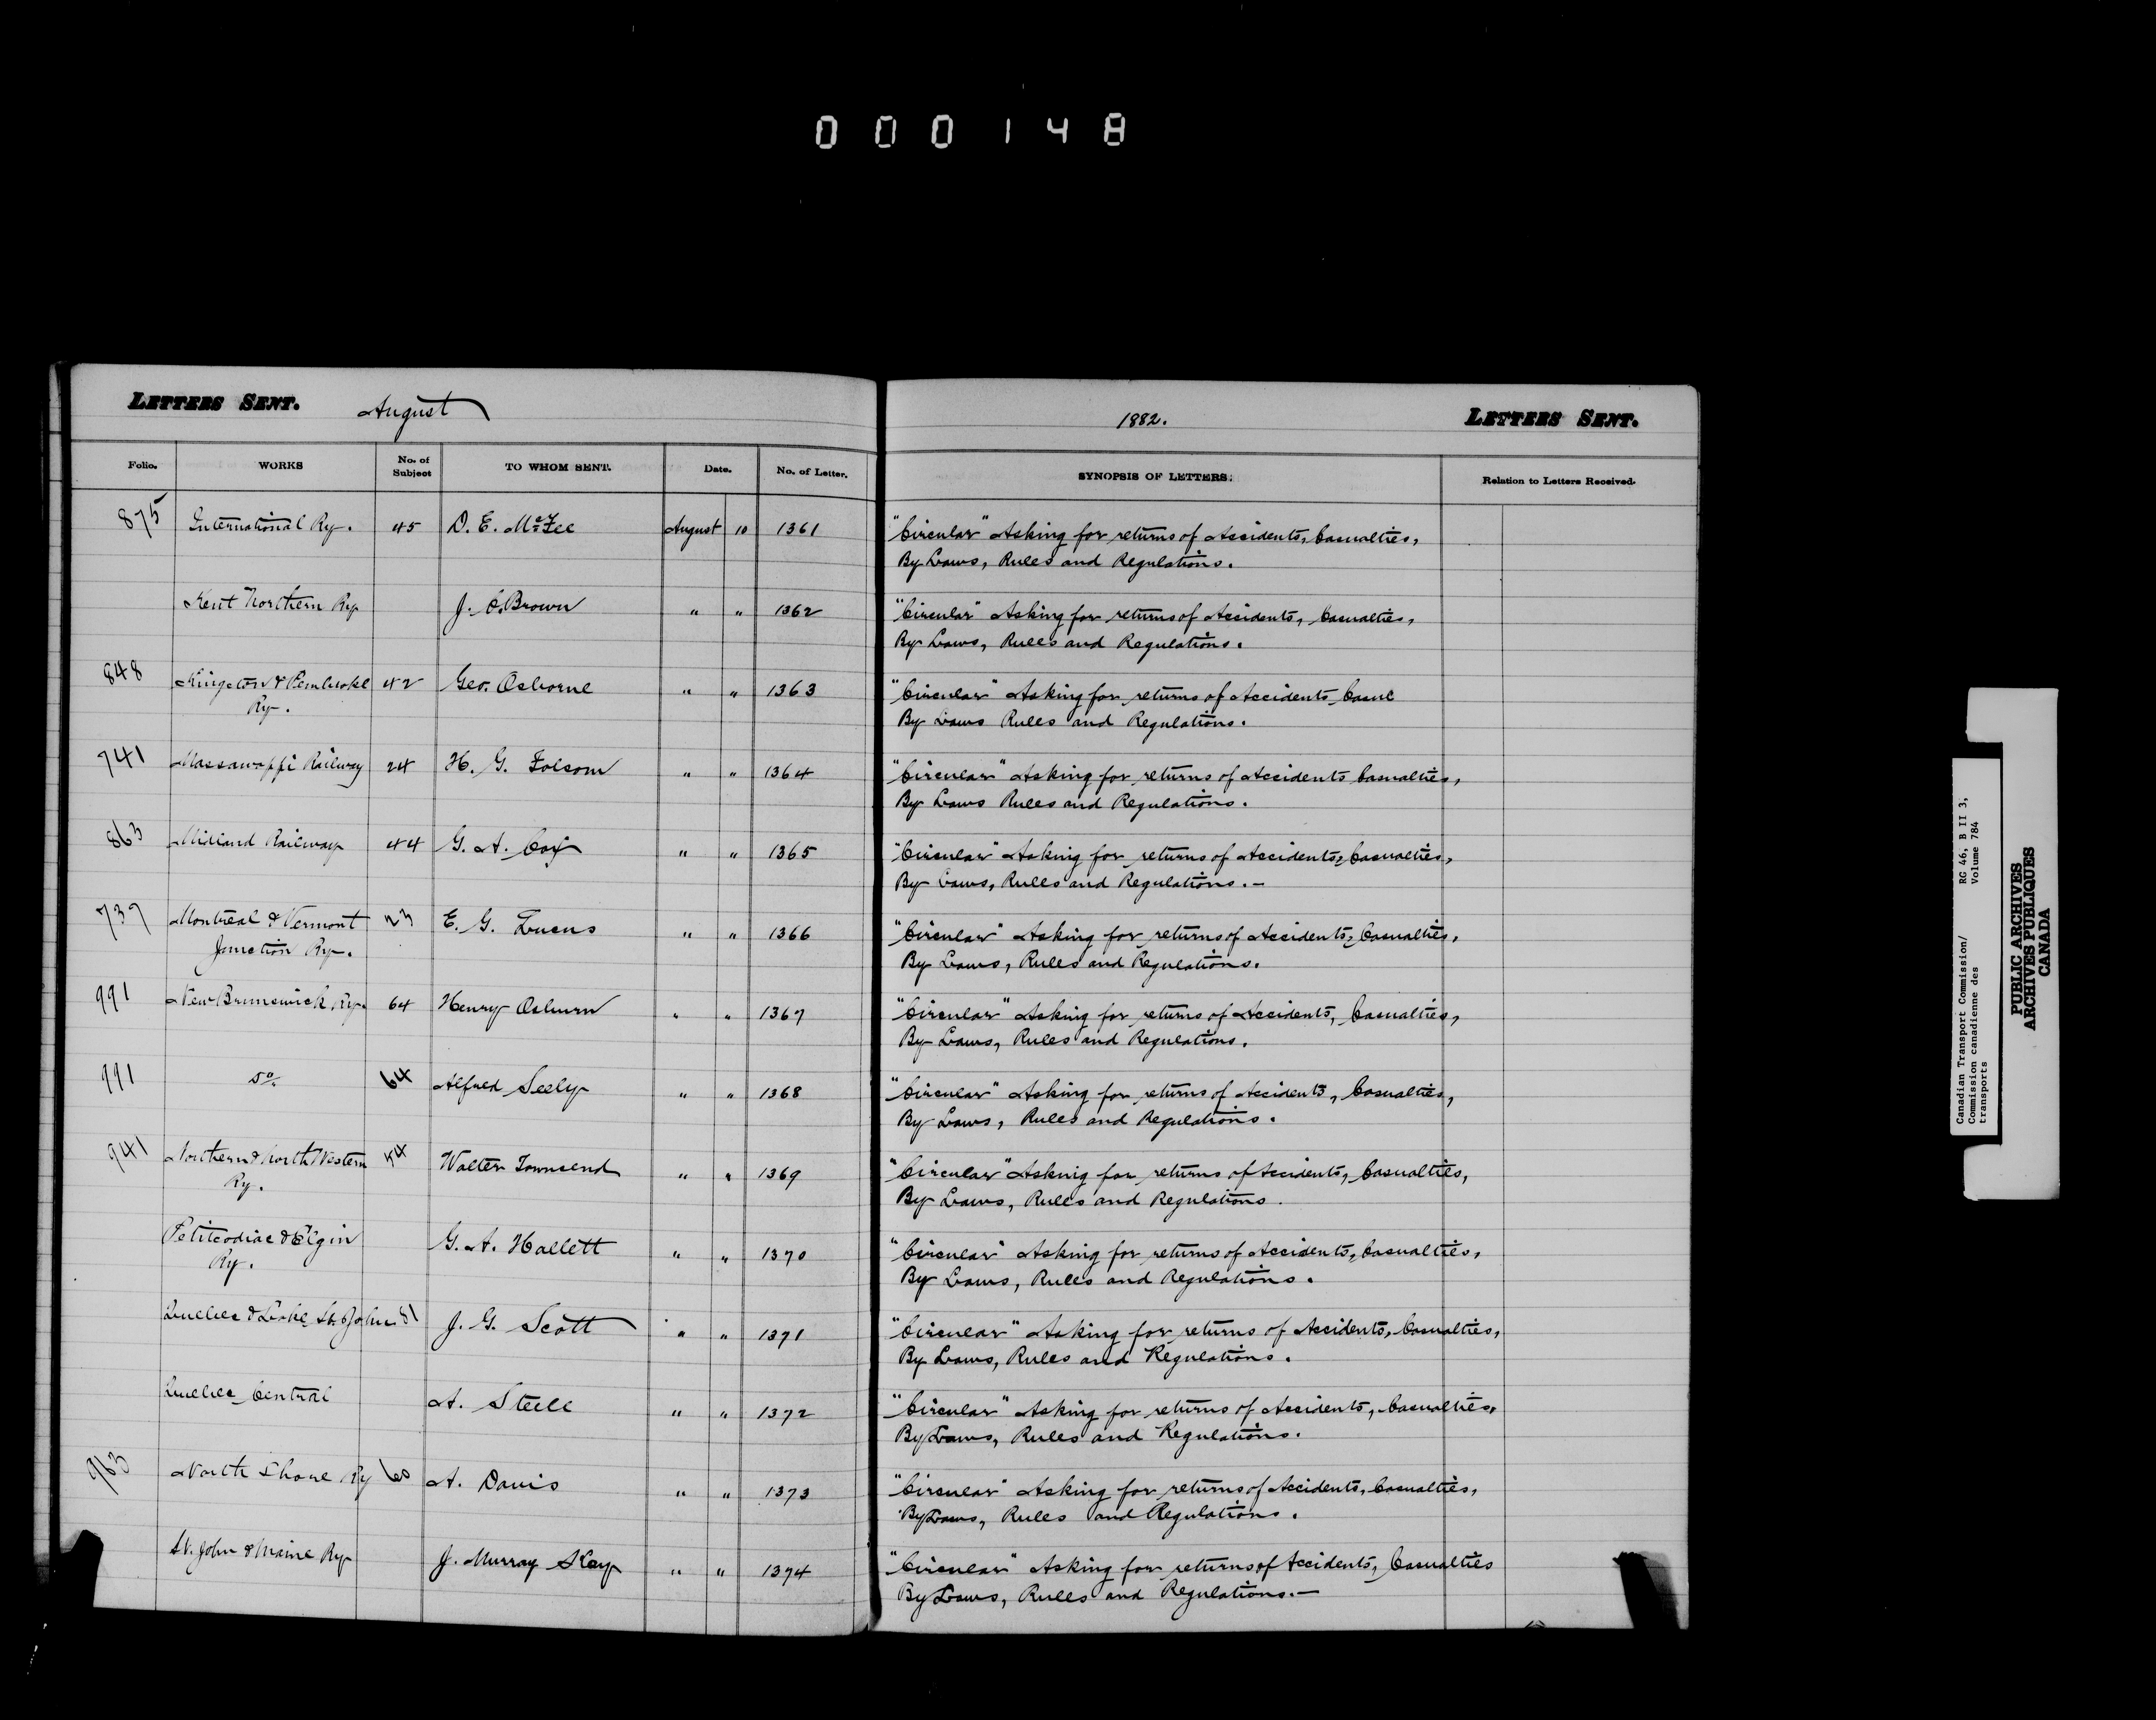 000148
LETTERS SENT. August
1882. LETTERS SENT.
Folio. WORKS No. of Subject TO WHOM SENT. Date. No. of Letter. SYNOPSIS OF LETTERS. Relation to Letters Received.
875 International Ry. 45 D. E. McFee August 10 1361 "Circular" Asking for returns of Accidents, Casualties,
By Laws, Rules and Regulations.
Kent Northern Ry J. C. Brown " " 1362 "Circular" Asking for returns of Accidents, Casualties,
By Laws, Rules and Regulations.
848 Kingston & Pembroke 42 Geo. Osborne " " 1363 "Circular" Asking for returns of Accidents Casuc
Ry. By Laws Rules and Regulations.
741 Massawappi Railway 24 H. G. Folsom " " 1364 "Circular" Asking for returns of Accidents Casualties,
By Laws Rules and Regulations.
863 Midland Railway 44 G. A. Cox " " 1365 "Circular" Asking for returns of Accidents, Casualties,
By Laws, Rules and Regulations.—
737 Montreal & Vermont 23 E. G. Lucas " " 1366 "Circular" Asking for returns of Accidents, Casualties,
Junction Ry. By Laws, Rules and Regulations.
991 New Brunswick Ry. 64 Henry Osburn " " 1367 "Circular" Asking for returns of Accidents, Casualties,
By Laws, Rules and Regulations.
991 Do. 64 Alfred Seely " " 1368 "Circular" Asking for returns of Accidents, Casualties,
By Laws, Rules and Regulations.
941 Northern & North Western 54 Walter Townsend " " 1369 "Circular" Asking for returns of Accidents, Casualties,
Ry. By Laws, Rules and Regulations.
Petitcodiac & Elgin G. A. Hallett " " 1370 "Circular" Asking for returns of Accidents, Casualties,
Ry. By Laws, Rules and Regulations.
Quebec & Lake St. John 81 J. G. Scott " " 1371 "Circular" Asking for returns of Accidents, Casualties,
By Laws, Rules and Regulations.
Quebec Central A. Steele " " 1372 "Circular" Asking for returns of Accidents, Casualties.
By Laws, Rules and Regulations.
963 North Shore Ry 60 A. Davis " " 1373 "Circular" Asking for returns of Accidents, Casualties,
By Laws, Rules and Regulations.
St. John & Maine Ry J. Murray Kay " " 1374 "Circular" Asking for returns of Accidents, Casualties
By Laws, Rules and Regulations.—
Canadian Transport Commission/ RG 46, B II 3,
Commission canadienne des Volume 784
transports
PUBLIC ARCHIVES
ARCHIVES PUBLIQUES
CANADA